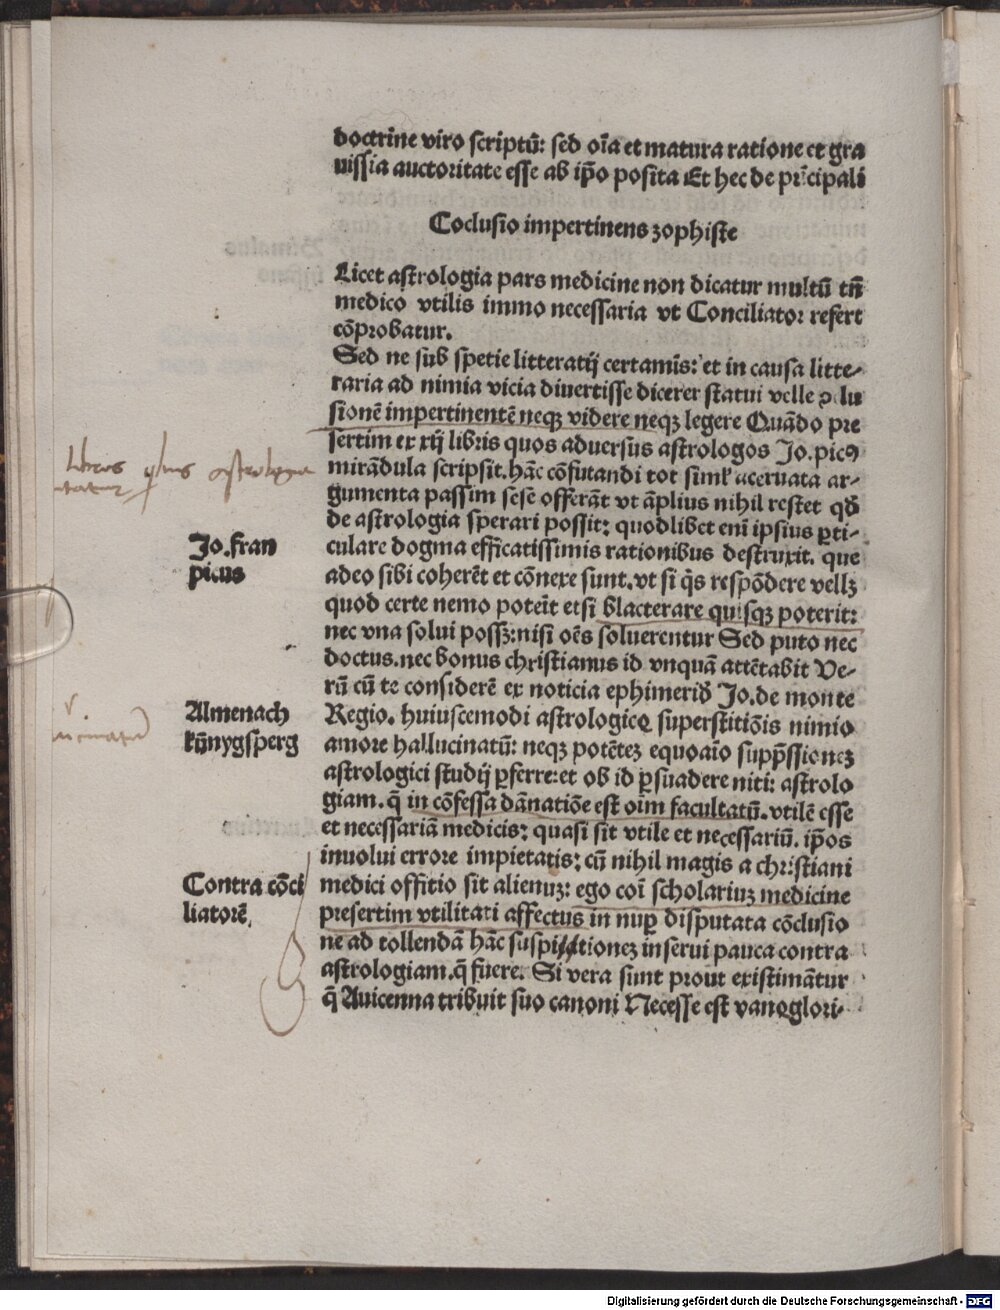 doctrine viro scriptū: sed oīa et matura ratione et gra
uissia auctoritate esse ab ip̄o posita Et hec de prīcipali
Coclusio impertinens zophiste
Licet astrologia pars medicine non dicatur multū tn̄
medico vtilis immo necessaria vt Conciliator refert
cōprobatur.
Sed ne sub spetie litteratij certamīs: et in causa litte-
raria ad nimia vicia diuertisse dicerer statui velle ꝯclu
sionē impertinentē neqꝫ videre neqꝫ legere Quādo pre
sertim ex xij libris quos aduersus astrologos Jo. picꝰ
mirādula scripsit. hāc cōfutandi tot siml' aceruata ar-
gumenta passim sese offerāt vt āplius nihil restet qđ
de astrologia sperari possit: quodlibet enī ipsius ꝑti-
culare dogma efficatissimis rationibus destruxit. que
adeo sibi coherēt et cōnexe sunt. vt si q̄s respōdere vellꝫ
quod certe nemo poterit etsi blacterare quisqꝫ poterit:
nec vna solui possꝫ: nisi oēs soluerentur Sed puto nec
doctus. nec bonus christianus id vnquā attētabit Ve-
rū cū te considerē ex noticia ephimeriđ Jo. de monte
Regio. huiuscemodi astrologicę superstitiōis nimio
amore hallucinatū: neqꝫ potētez equoaīo supp̄ssionez
astrologici studij ꝑferre: et ob id ꝑsuadere niti: astrolo
giam. q̄ in cōfessa dānatiōe est oīm facultatū. vtilē esse
et necessariā medicis: quasi sit vtile et necessariū. ip̄os
inuolui errore impietatis: cū nihil magis a christiani
medici offitio sit alienuz: ego coī scholariuz medicine
presertim vtilitati affectus in nuꝑ disputata cōclusio
ne ad tollendā hāc suspitionez inserui pauca contra
astrologiam. q̄ fuere. Si vera sunt prout existimātur
q̄ Auicenna tribuit suo canoni Necesse est vanęglori-
Jo. fran
picus
Almenach
kūnygsperg
Contra cōci
liatorē.
Digitalisierung gefördert durch die Deutsche Forschungsgemeinschaft - DFG